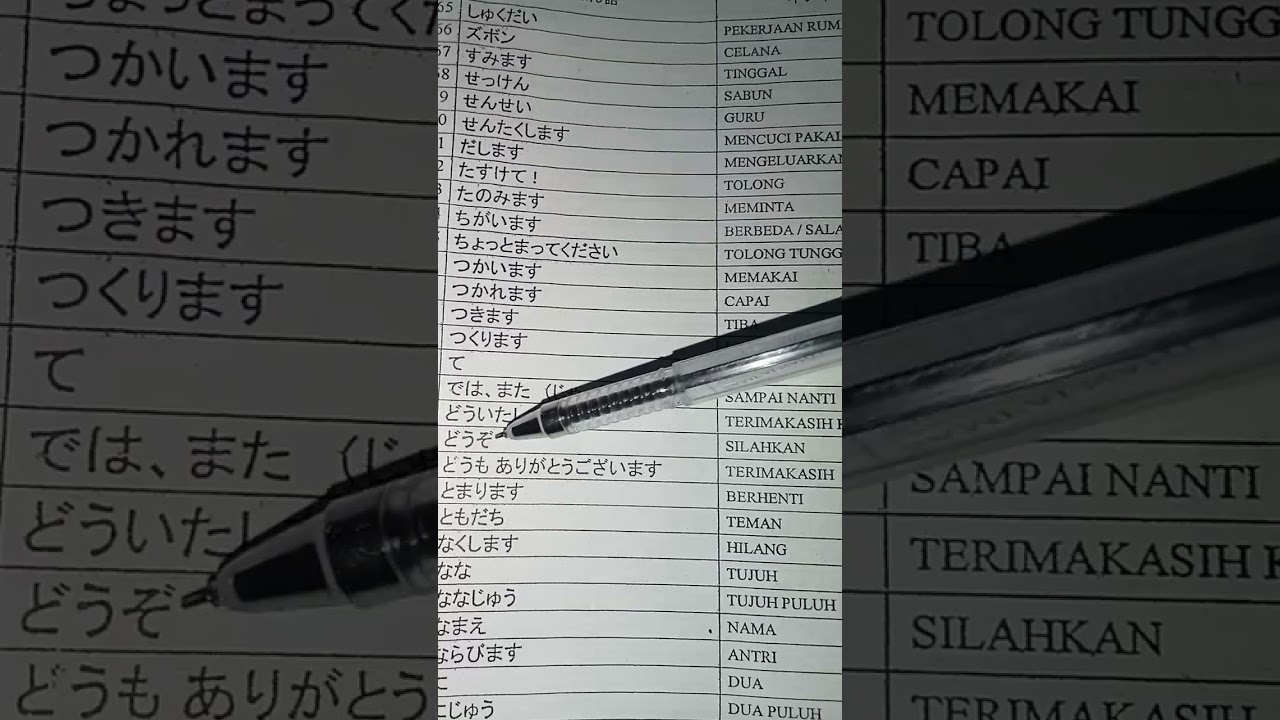 65 しゅくだい PEKERJAAN RUM
66 ズボン CELANA
67 すみます TINGGAL
68 せっけん SABUN
9 せんせい GURU
0 せんたくします MENCUCI PAKAI
1 だします MENGELUARKAN
2 たすけて！ TOLONG
3 たのみます MEMINTA
ちがいます BERBEDA / SALA
ちょっとまってください TOLONG TUNGG
つかいます MEMAKAI
つかれます CAPAI
つきます TIBA
つくります
て
では、また (じ SAMPAI NANTI
どういたし TERIMAKASIH K
どうぞ SILAHKAN
どうも ありがとうございます TERIMAKASIH
とまります BERHENTI
ともだち TEMAN
なくします HILANG
なな TUJUH
ななじゅう TUJUH PULUH
なまえ NAMA
ならびます ANTRI
に DUA
にじゅう DUA PULUH